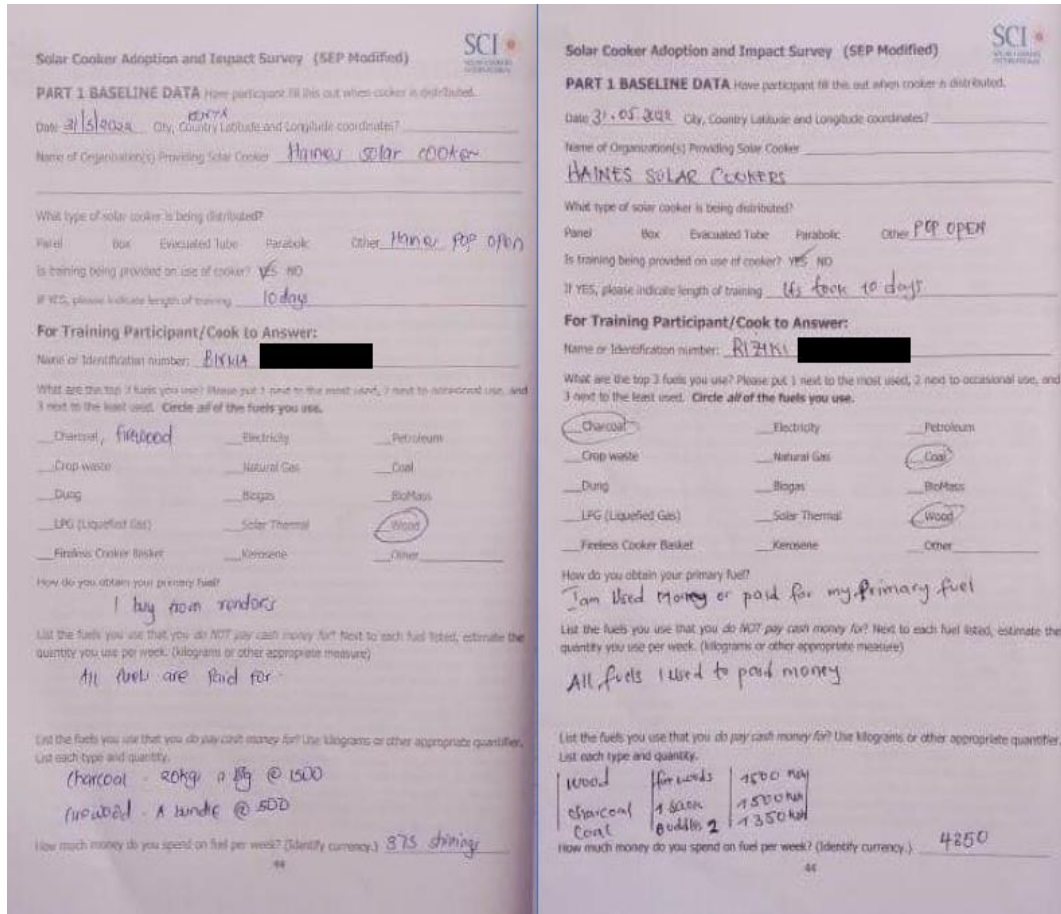 SCI
SOLAR COOKERS
INTERNATIONAL
Solar Cooker Adoption and Impact Survey (SEP Modified)
PART 1 BASELINE DATA Have participant fill this out when cooker is distributed.
KENYA
Date 31/5/2022 City, Country Latitude and Longitude coordinates?
Name of Organization(s) Providing Solar Cooker Haines solar cooker
What type of solar cooker is being distributed?
Panel Box Evacuated Tube Parabolic Other Haines Pop Open
Is training being provided on use of cooker? YES NO
IF YES, please indicate length of training 10 days
For Training Participant/Cook to Answer:
Name or Identification number:
What are the top 3 fuels you use? Please put 1 next to the most used, 2 next to occasional use, and
3 next to the least used. Circle all of the fuels you use.
__Charcoal, firewood __Electricity __Petroleum
__Crop waste __Natural Gas __Coal
__Dung __Biogas __BioMass
__LPG (Liquefied Gas) __Solar Thermal __Wood
__Fireless Cooker Basket __Kerosene __Other
How do you obtain your primary fuel?
I buy from vendors
List the fuels you use that you do NOT pay cash money for? Next to each fuel listed, estimate the
quantity you use per week. (kilograms or other appropriate measure)
All fuels are Paid for.
List the fuels you use that you do pay cash money for? Use kilograms or other appropriate quantifier.
List each type and quantity.
Charcoal - 20kgs a Bg @ 1500
firewood - A bundle @ 500
How much money do you spend on fuel per week? (Identify currency.) 875 shilings
44
SCI
SOLAR COOKERS
INTERNATIONAL
Solar Cooker Adoption and Impact Survey (SEP Modified)
PART 1 BASELINE DATA Have participant fill this out when cooker is distributed.
Date 31.05.2022 City, Country Latitude and Longitude coordinates?
Name of Organization(s) Providing Solar Cooker
HAINES SOLAR COOKERS
What type of solar cooker is being distributed?
Panel Box Evacuated Tube Parabolic Other POP OPEN
Is training being provided on use of cooker? YES NO
If YES, please indicate length of training Its took 10 days
For Training Participant/Cook to Answer:
Name or Identification number: RIZIKI
What are the top 3 fuels you use? Please put 1 next to the most used, 2 next to occasional use, and
3 next to the least used. Circle all of the fuels you use.
__Charcoal __Electricity __Petroleum
__Crop waste __Natural Gas __Coal
__Dung __Biogas __BioMass
__LPG (Liquefied Gas) __Solar Thermal __Wood
__Fireless Cooker Basket __Kerosene __Other
How do you obtain your primary fuel?
I am Used Money or paid for my Primary fuel
List the fuels you use that you do NOT pay cash money for? Next to each fuel listed, estimate the
quantity you use per week. (kilograms or other appropriate measure)
All fuels I used to paid money
List the fuels you use that you do pay cash money for? Use kilograms or other appropriate quantifier.
List each type and quantity.
Wood firewoods 1500
charcoal 1 sack 1500 ksh
Coal Buddles 2 1350 ksh
How much money do you spend on fuel per week? (Identify currency.) 4250
44